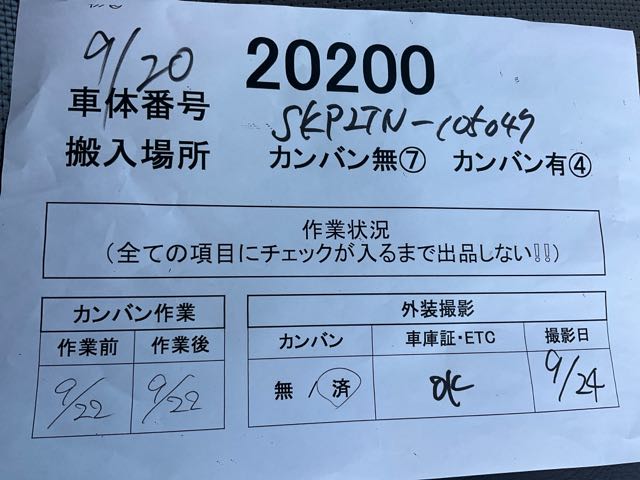 9/20
20200
車体番号 SKP2TN-105049
搬入場所 カンバン無⑦ カンバン有④
作業状況
(全ての項目にチェックが入るまで出品しない!!)
カンバン作業 外装撮影
作業前 作業後 カンバン 車庫証・ETC 撮影日
9/22 9/22 無/済 OK 9/24